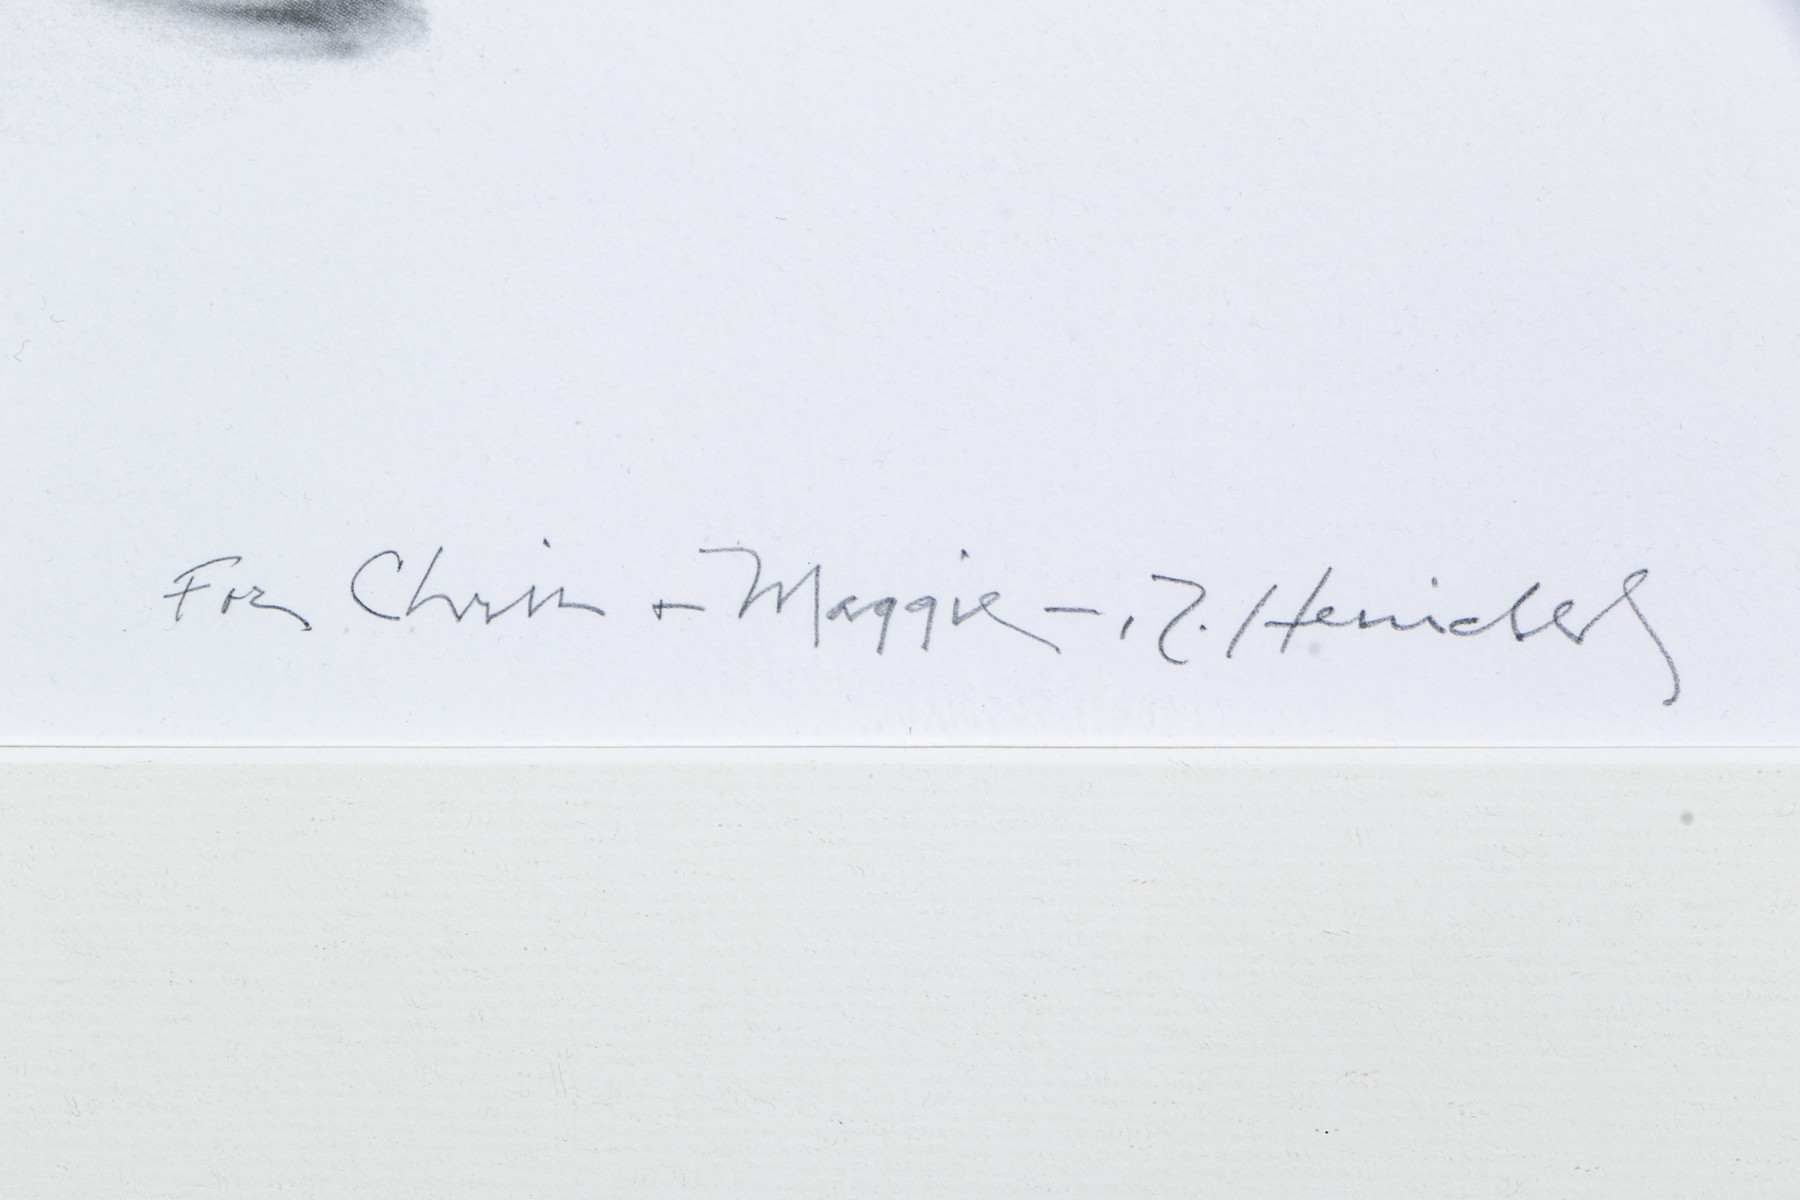 For Chris + Maggie - R. Heinichen